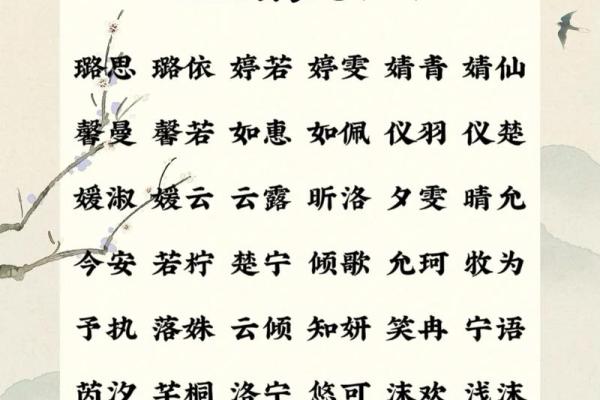 璐思 璐依 婷若 婷雯 婧青 婧仙
馨曼 馨若 如惠 如佩 仪羽 仪楚
媛淑 媛云 云露 昕洛 夕雯 晴允
今安 若柠 楚宁 倾歌 允珂 牧为
予执 落姝 云倾 知妍 笑冉 宁语
茵汐 芊桐 洛宁 悠可 沫欢 浅沫